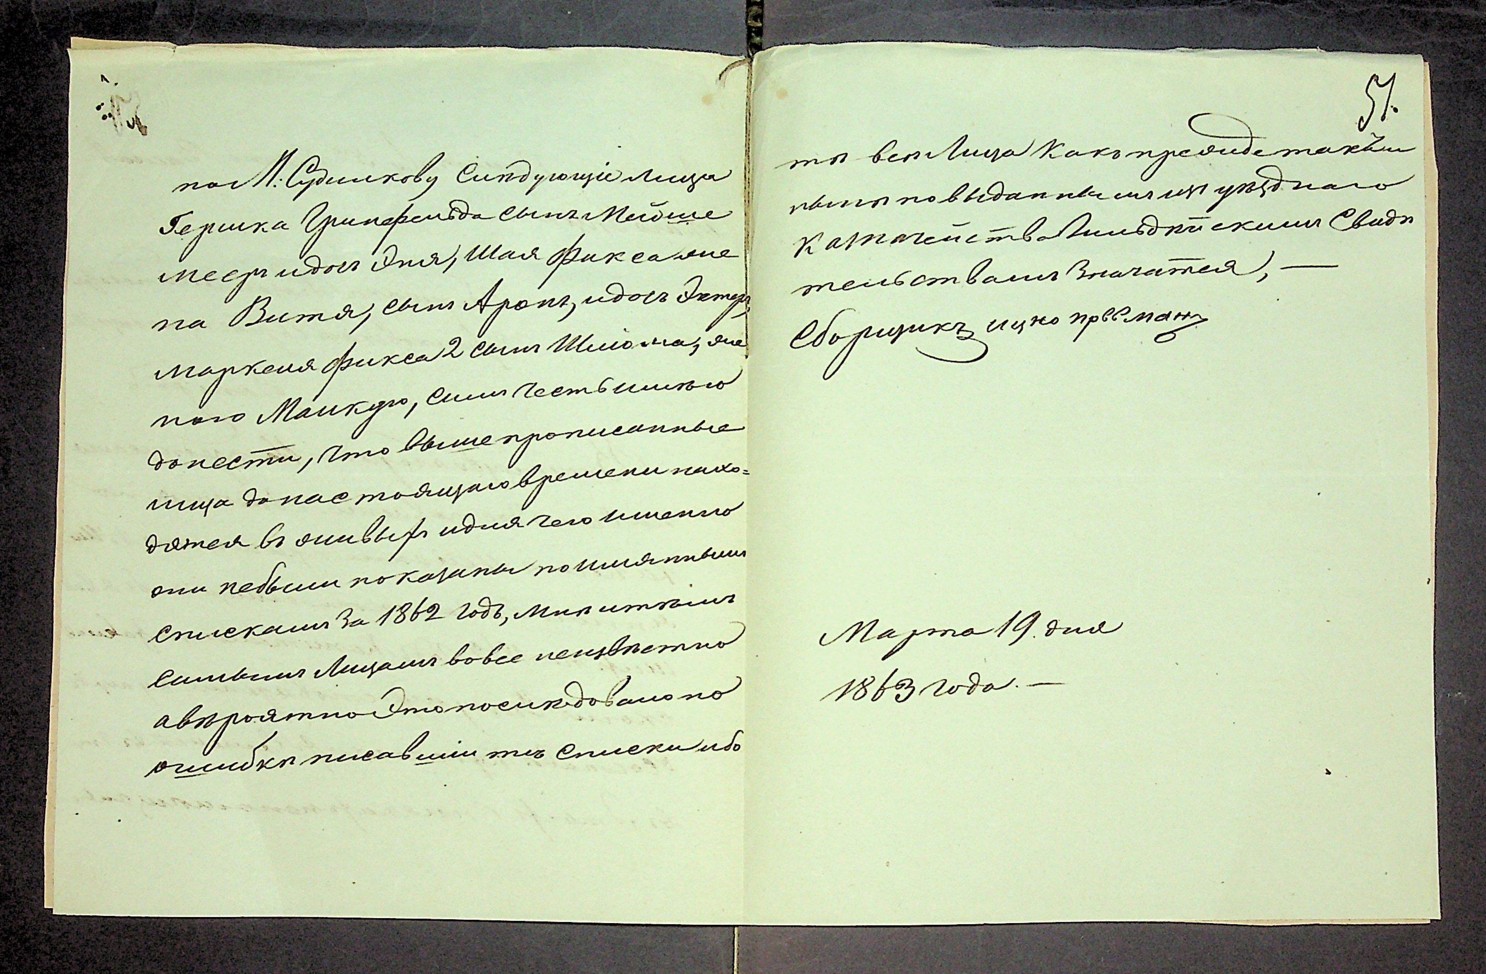 51.
по М: Судилкову Слѣдующіе лица
Гершка Гринфельда сынъ Мейше
Мееръ идочь Эня, Шая Фикса же
на Витя, сынъ Аронъ, идочь Эстеръ,
Маркеля Фикса 2 сынъ Шліома, же
ного Малкую, симъ честь имѣю
донести, что выше прописанные
лица до настоящаго времени нахо=
дятся въ живыхъ идля чего именно
они небыли показаны поимяннымъ
спискамъ За 1862 годъ, мнѣ итѣмъ
самымъ Лицамъ вовсе неизвѣстно
авѣроятно Это послѣдовало по
ошибкѣ писавшіи тѣ списки ибо
тѣ всѣ Лица Какъ прежде такъ и
нынѣ по выданнымъ изъ уѣзднаго
Казначейства Гильдейскимъ Свидѣ
тельствамъ Значатся, —
Сборщикъ ицко
Марта 19 дня
1863 года. —